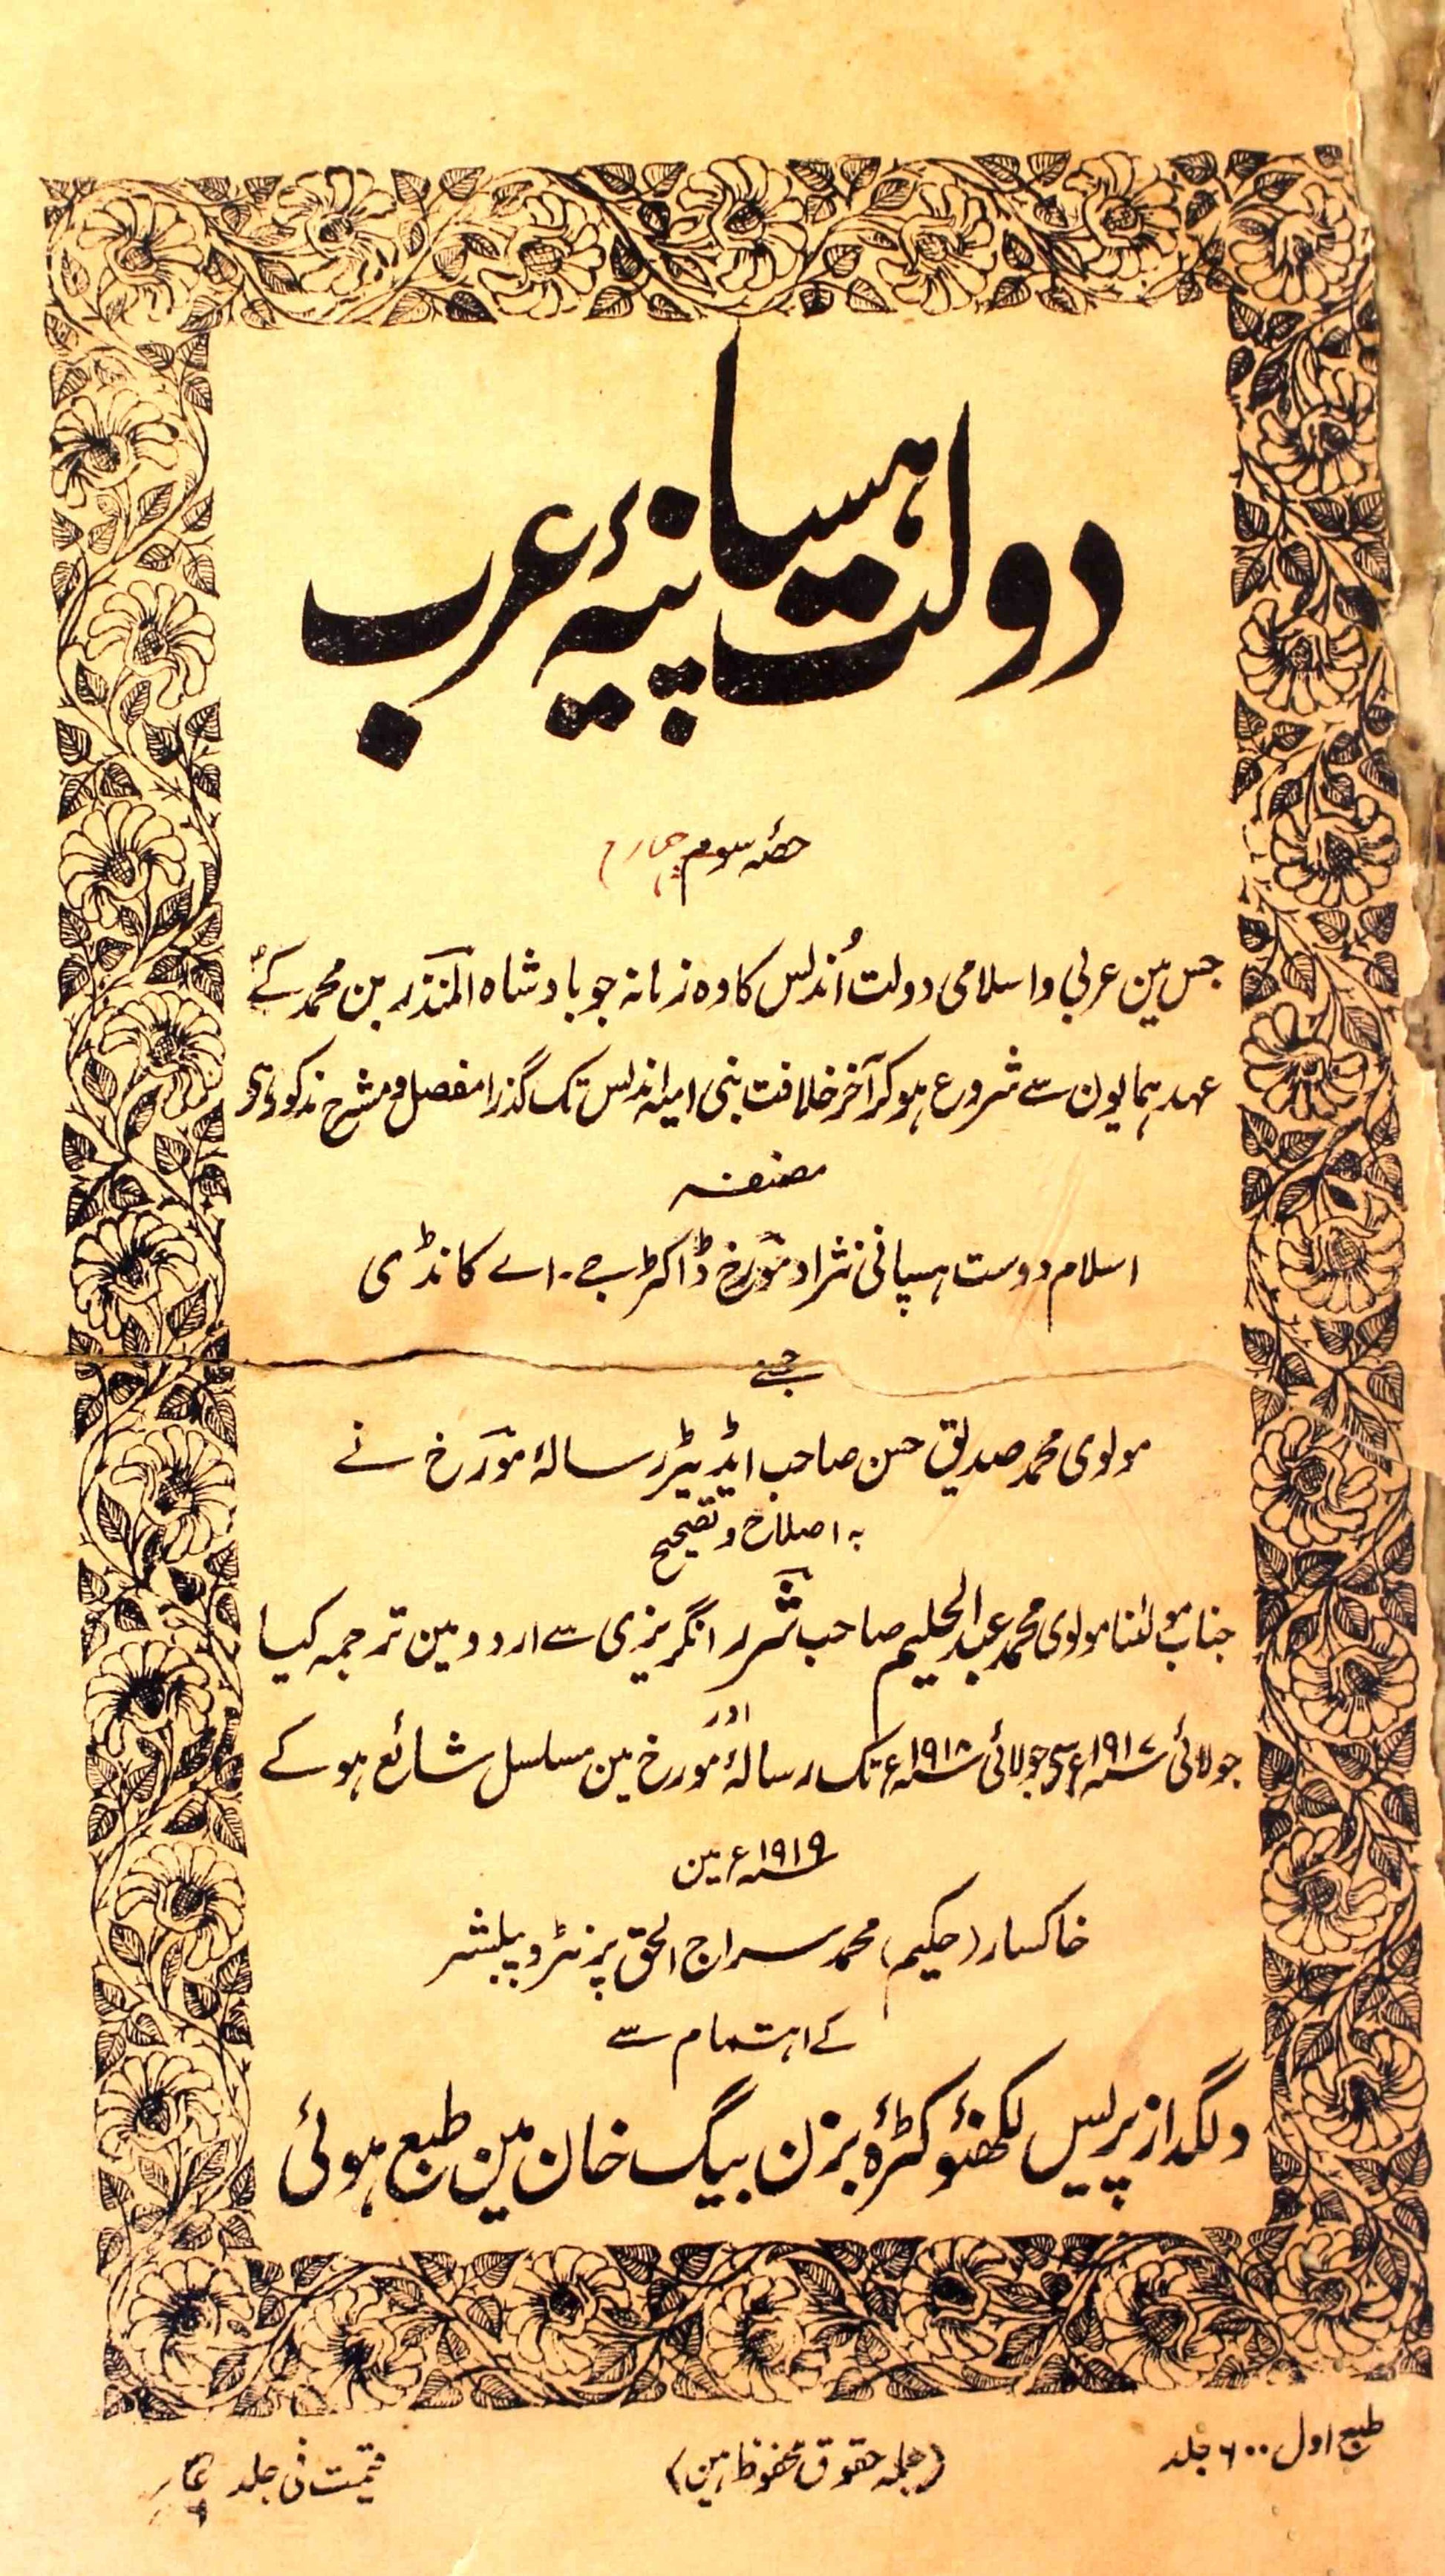 دولت ہسپانیۂ عرب
حصۂ سوم چہارم
جس مین عربی و اسلامی دولت اُندلس کا وہ زمانہ جو بادشاہ المنذر بن محمد کے
عہد ہمایون سے شروع ہوکر آخر خلافت بنی امیۂ اندلس تک گذرا مفصل و مشرح مذکور ہی
مصنفہ
اسلام دوست ہسپانی نژاد مؤرخ ڈاکٹر جے۔اے کانڈی
جسے
مولوی محمد صدیق حسن صاحب ایڈیٹر رسالۂ مؤرخ نے
بہ اصلاح و تصحیح
جناب مولٰنا مولوی محمد عبدالحلیم صاحب شرر انگریزی سے اردو مین ترجمہ کیا
اور
جولائی ۱۹۱۷ء سے جولائی ۱۹۱۸ء تک رسالۂ مؤرخ مین مسلسل شائع ہوکے
۱۹۱۹ء مین
خاکسار (حکیم) محمد سراج الحق پرنٹر و پبلشر
کے اہتمام سے
دلگداز پریس لکھنؤ کٹرۂ بزن بیگ خان مین طبع ہوئی
طبع اول ۶۰۰ جلد
(جملہ حقوق محفوظ ہین)
قیمت فی جلد